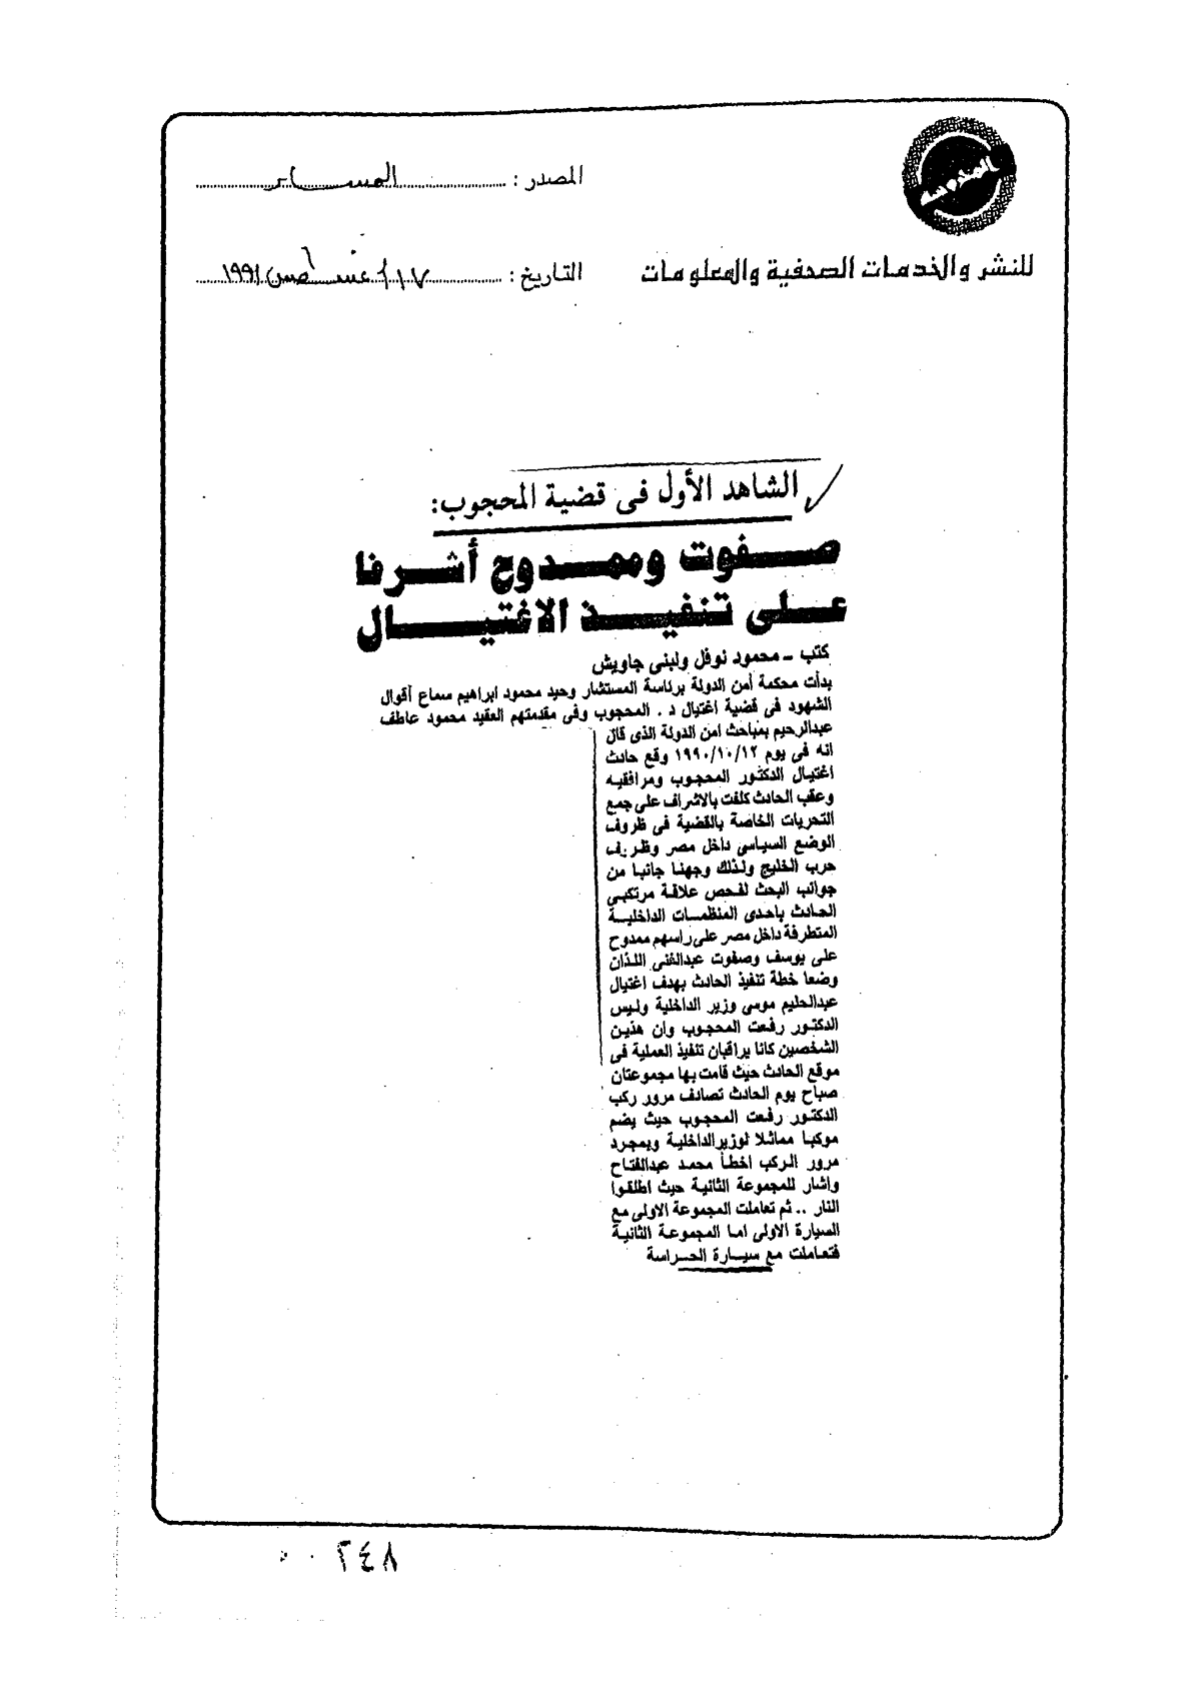 المصدر : المساء
للنشر والخدمات الصحفية والمعلومات
التاريخ : ١٧ أغسطس ١٩٩١
الشاهد الأول فى قضية المحجوب:
صفوت وممدوح أشرفا
على تنفيذ الاغتيال
كتب - محمود نوفل ولبنى جاويش
بدأت محكمة أمن الدولة برئاسة المستشار وحيد محمود ابراهيم سماع أقوال
الشهود فى قضية اغتيال د . المحجوب وفى مقدمتهم العقيد محمود عاطف
عبدالرحيم بمباحث امن الدولة الذى قال
انه فى يوم ١٩٩٠/١٠/١٢ وقع حادث
اغتيال الدكتور المحجوب ومرافقيه
وعقب الحادث كلفت بالاشراف على جمع
التحريات الخاصة بالقضية فى ظروف
الوضع السياسى داخل مصر وظروف
حرب الخليج ولذلك وجهنا جانبا من
جوانب البحث لفحص علاقة مرتكبى
الحادث باحدى المنظمات الداخلية
المتطرفة داخل مصر على راسهم ممدوح
على يوسف وصفوت عبدالغنى اللذان
وضعا خطة تنفيذ الحادث بهدف اغتيال
عبدالحليم موسى وزير الداخلية وليس
الدكتور رفعت المحجوب وان هذين
الشخصين كانا يراقبان تنفيذ العملية فى
موقع الحادث حيث قامت بها مجموعتان
صباح يوم الحادث تصادف مرور ركب
الدكتور رفعت المحجوب حيث يضم
موكبا مماثلا لوزير الداخلية وبمجرد
مرور الركب اخطأ محمد عبدالفتاح
واشار للمجموعة الثانية حيث اطلقوا
النار .. ثم تعاملت المجموعة الاولى مع
السيارة الاولى اما المجموعة الثانية
فتعاملت مع سيارة الحراسة
٢٤٨